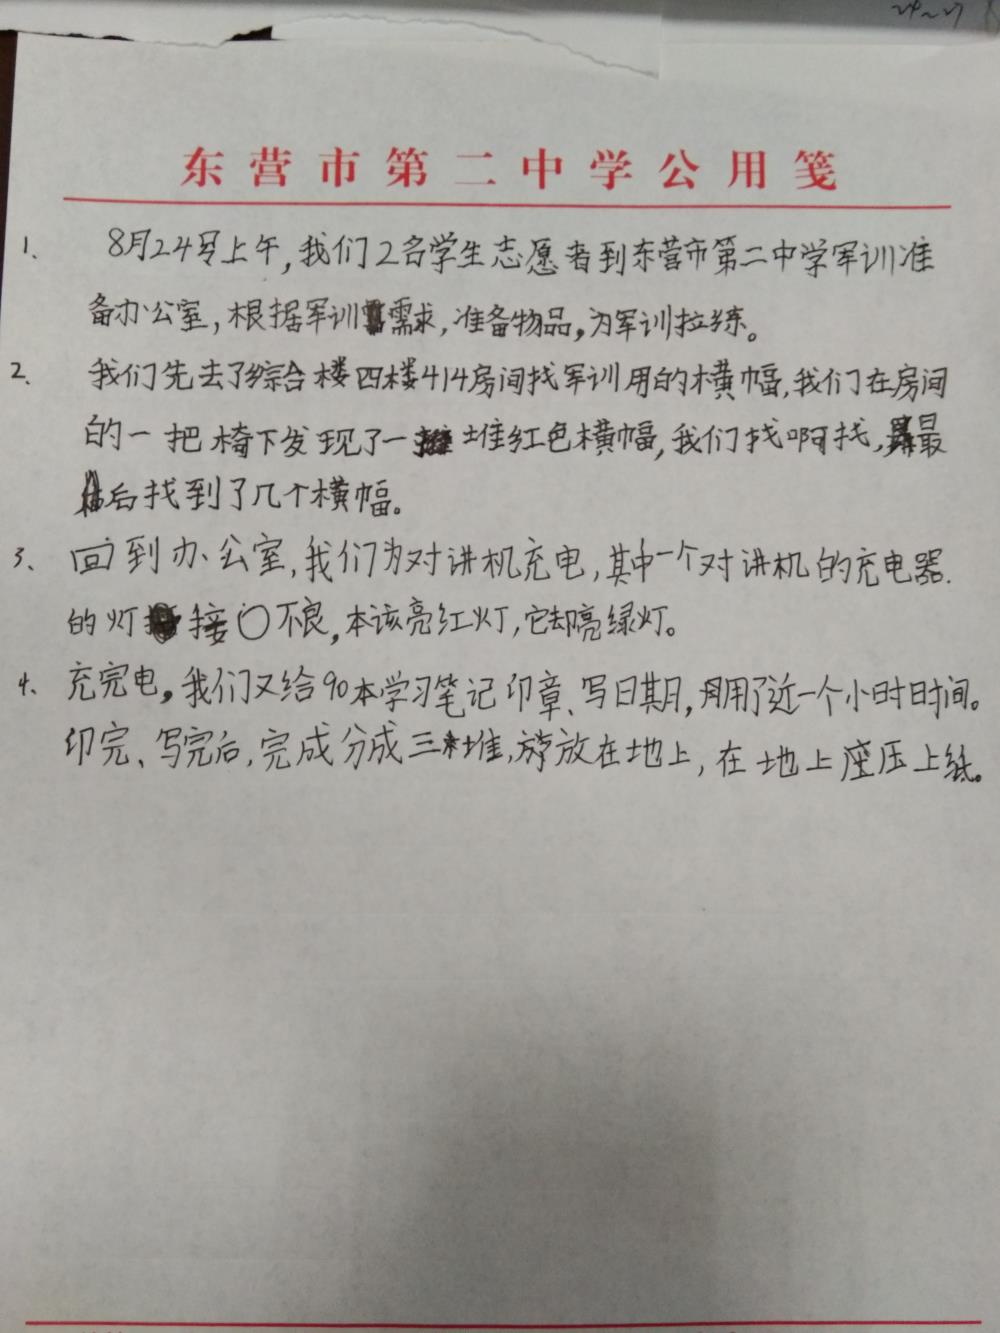 24~27
东营市第二中学公用笺
1、 8月24号上午,我们2名学生志愿者到东营市第二中学军训准
备办公室,根据军训需求,准备物品,为军训拉练。
2、 我们先去了综合楼四楼414房间找军训用的横幅,我们在房间
的一把椅下发现了一堆红色横幅,我们找啊找,最
后找到了几个横幅。
3、 回到办公室,我们为对讲机充电,其中一个对讲机的充电器
的灯接口不良,本该亮红灯,它却亮绿灯。
4、 充完电,我们又给90本学习笔记印章、写日期,用了近一个小时时间。
印完、写完后,完成分成三堆,放在地上,在地上座压上纸。